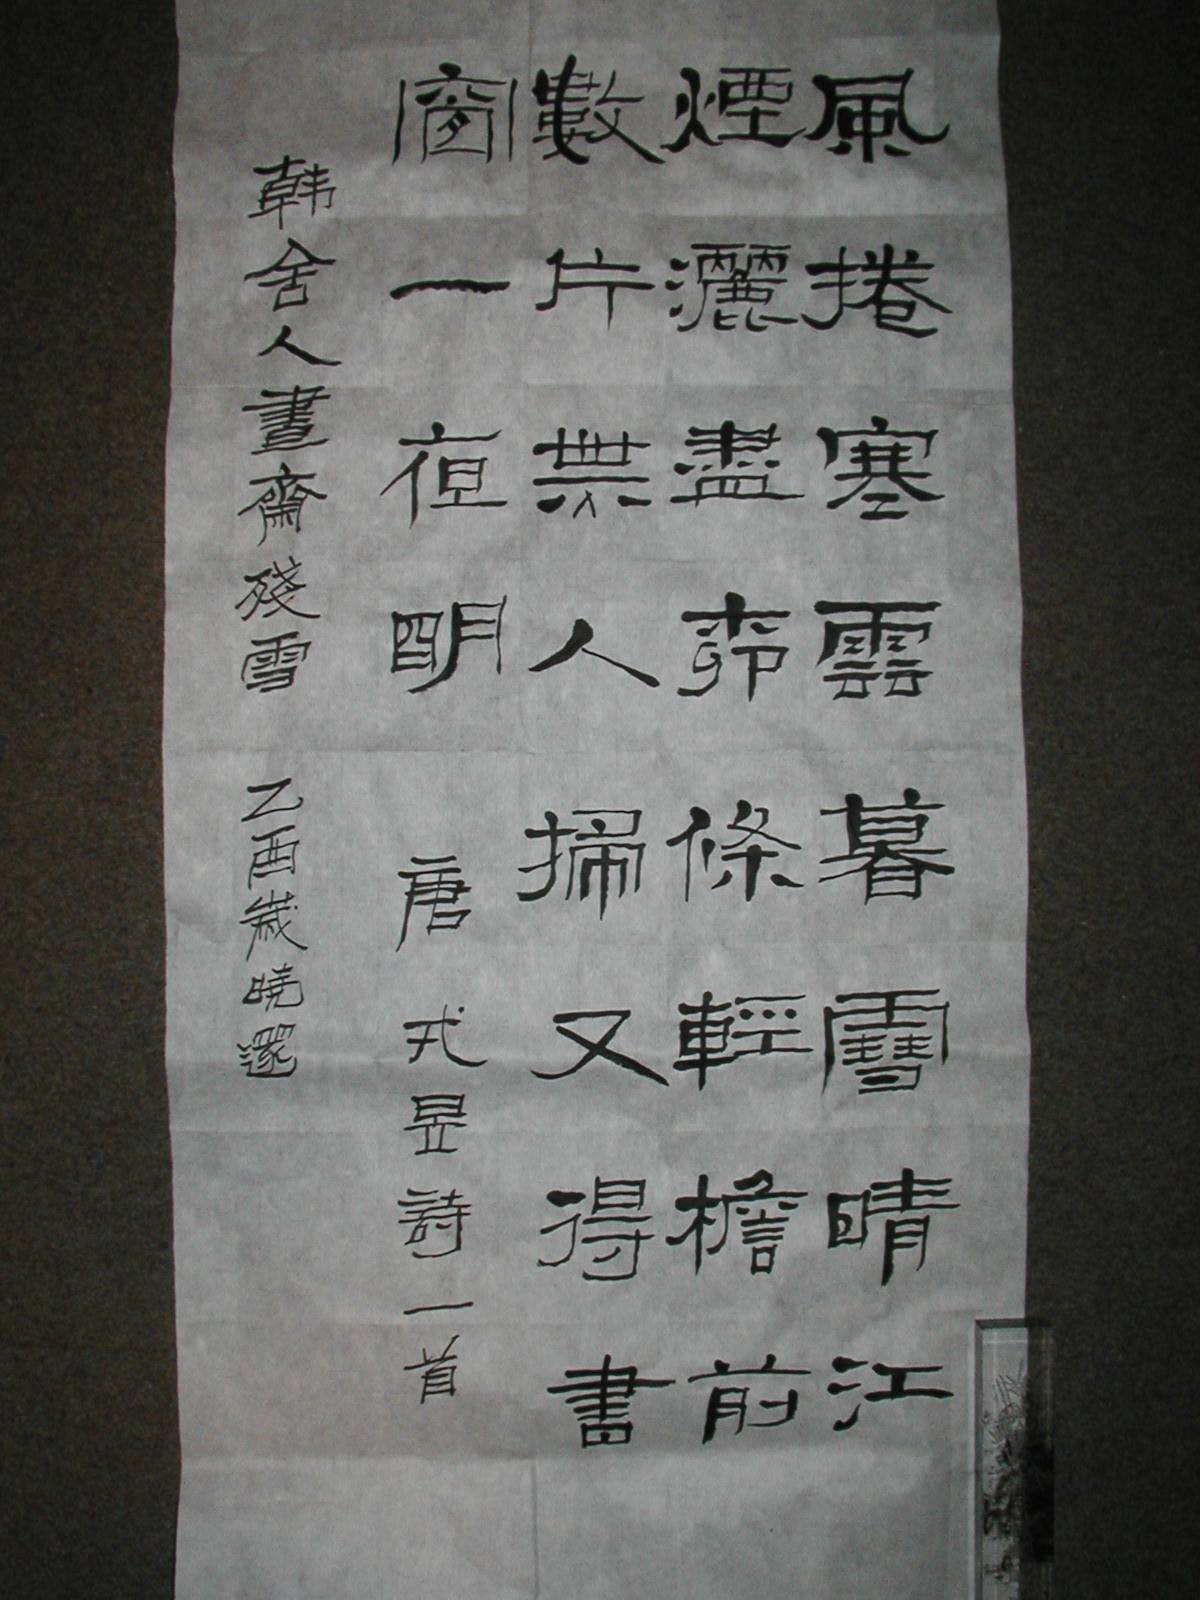 風捲寒雲暮雪晴江
煙灑盡柳條輕檐前
數片無人掃又得書
窗一夜明
唐戎昱詩一首
韓舍人書齋殘雪
乙酉歲曉還